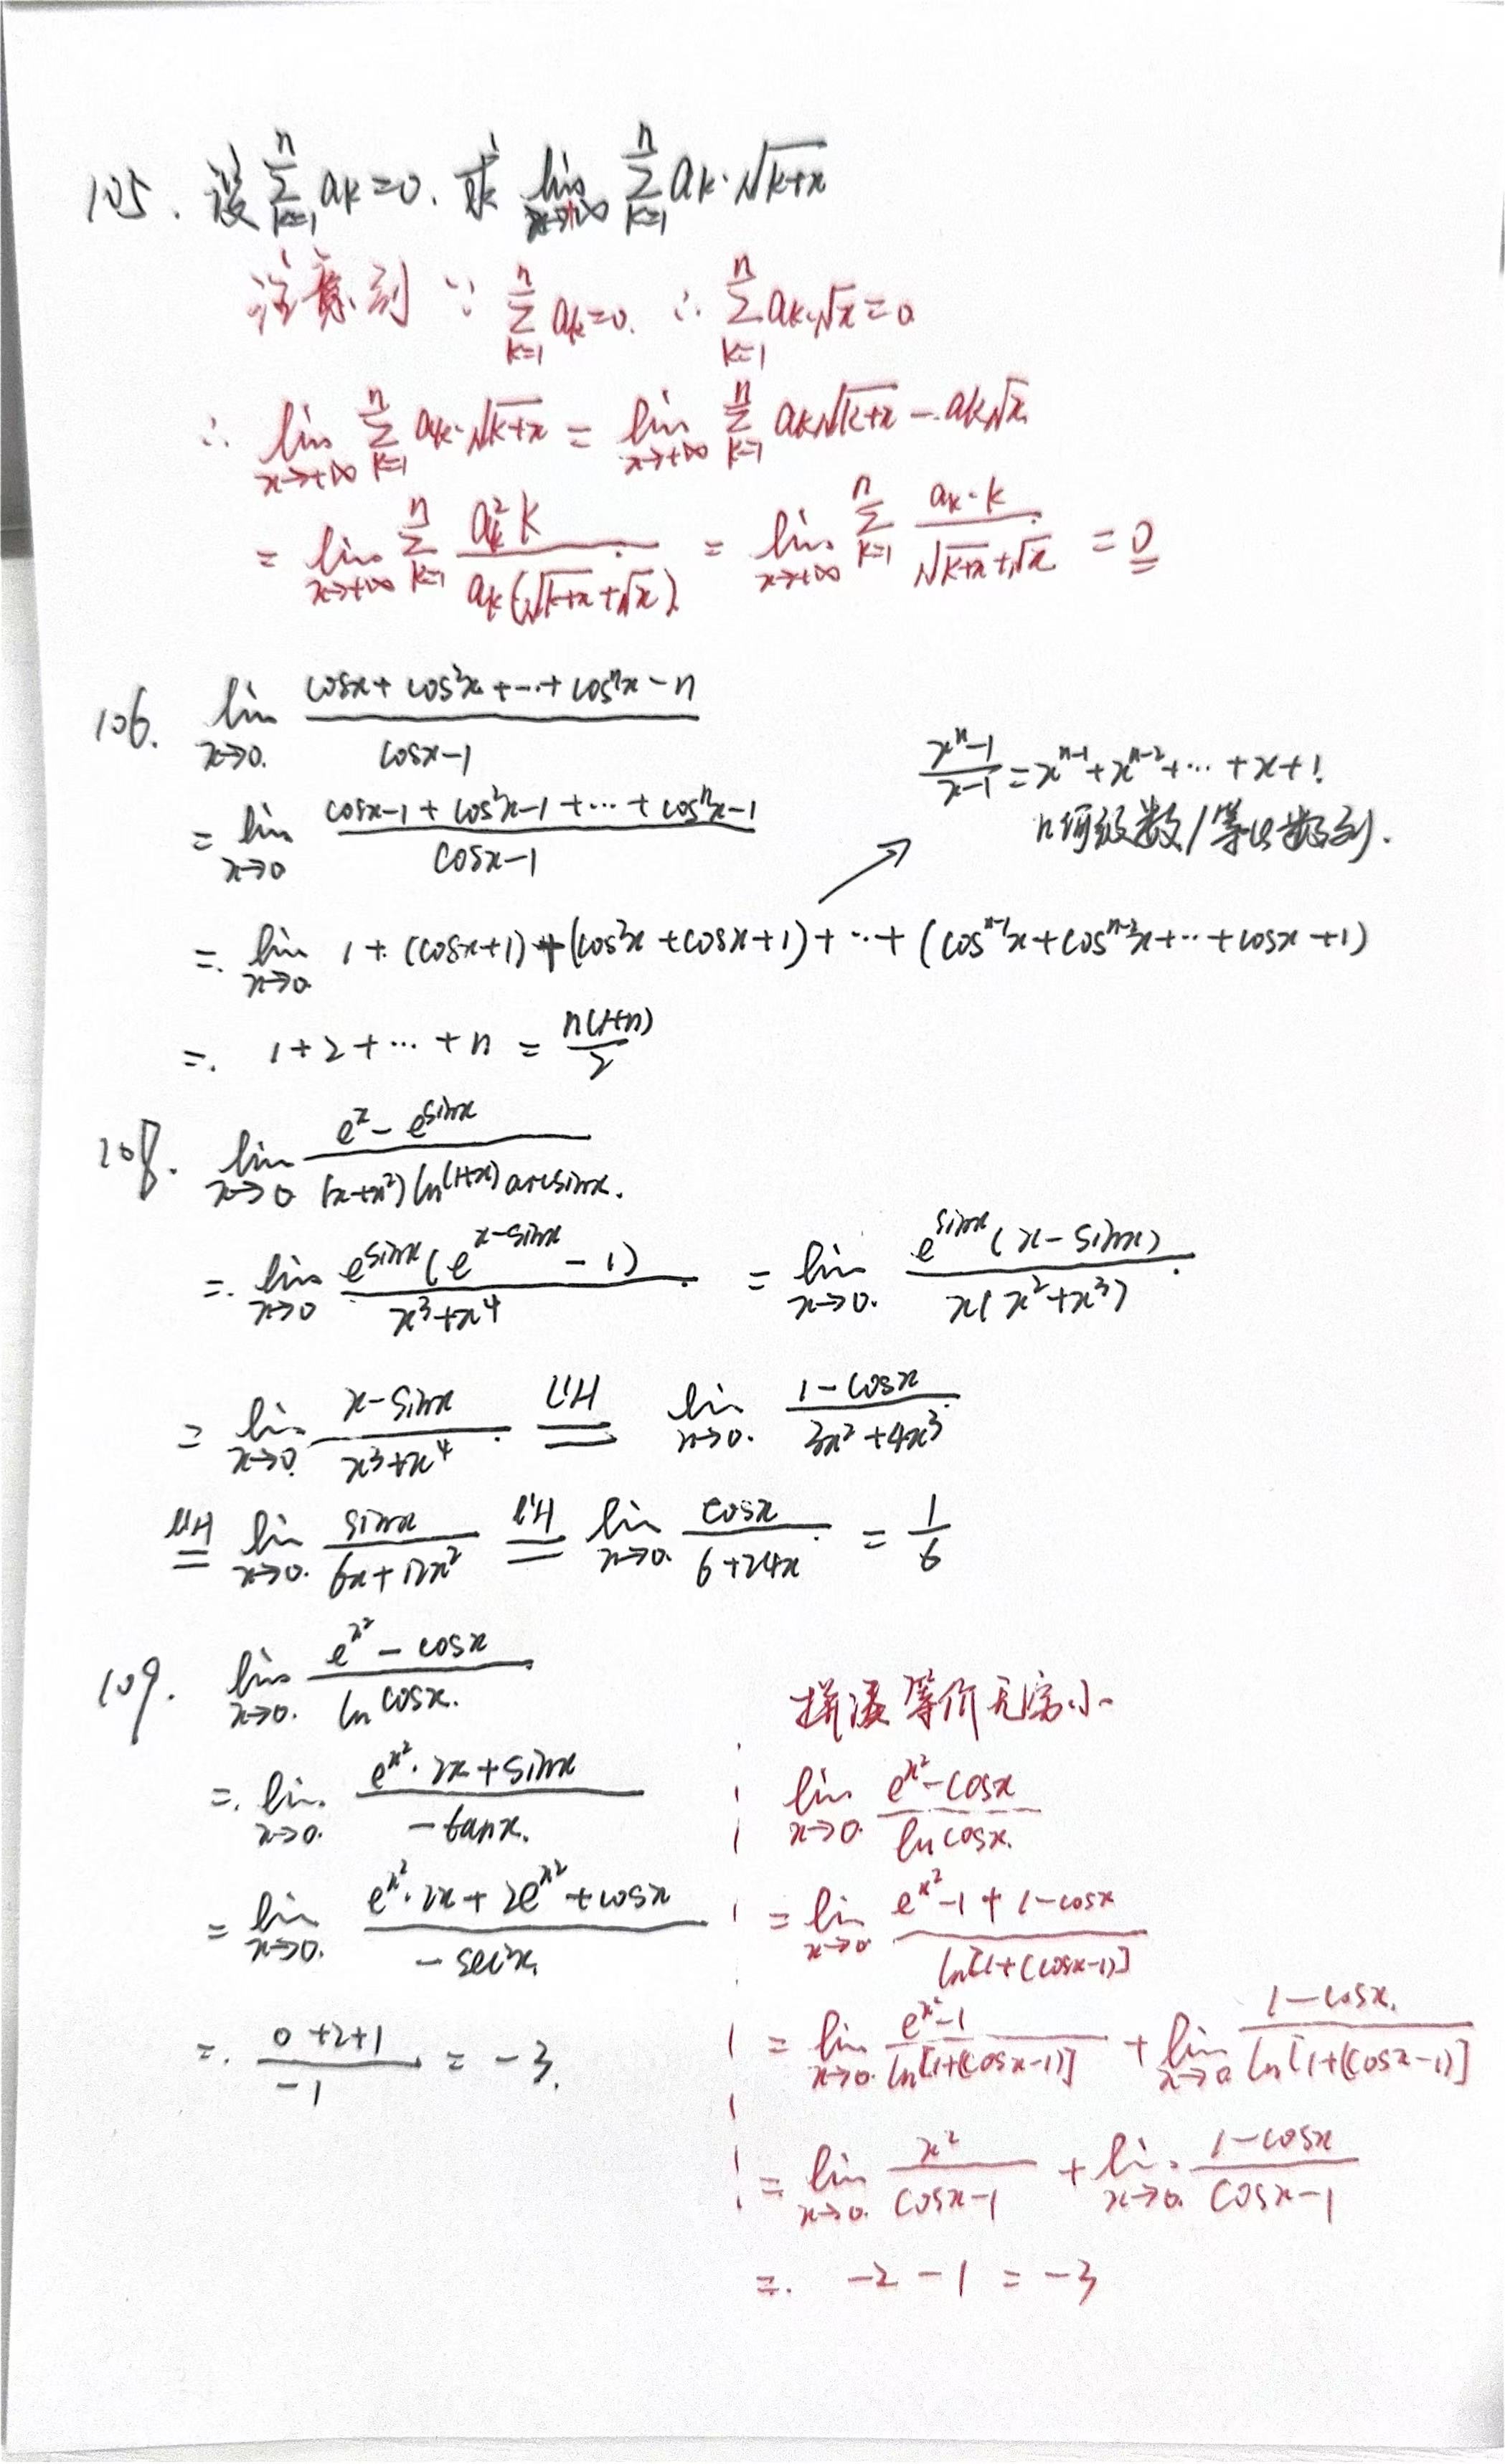 105. 设 $\sum_{k=1}^{n} a_k=0$. 求 $\lim_{x\to+\infty} \sum_{k=1}^{n} a_k\cdot\sqrt{k+x}$
注意到 ∵ $\sum_{k=1}^{n} a_k=0$. ∴ $\sum_{k=1}^{n} a_k\cdot\sqrt{x}=0$
∴ $\lim_{x\to+\infty} \sum_{k=1}^{n} a_k\cdot\sqrt{k+x} = \lim_{x\to+\infty} \sum_{k=1}^{n} a_k\sqrt{k+x} - a_k\sqrt{x}$
$= \lim_{x\to+\infty} \sum_{k=1}^{n} \frac{a_k^2 k}{a_k(\sqrt{k+x}+\sqrt{x})} = \lim_{x\to+\infty} \sum_{k=1}^{n} \frac{a_k\cdot k}{\sqrt{k+x}+\sqrt{x}} = 0$
106. $\lim_{x\to 0} \frac{\cos x+\cos^2 x+\cdots+\cos^n x-n}{\cos x-1}$
$\frac{x^n-1}{x-1}=x^{n-1}+x^{n-2}+\cdots+x+1.$
几何级数/等比数列.
$= \lim_{x\to 0} \frac{\cos x-1+\cos^2 x-1+\cdots+\cos^n x-1}{\cos x-1}$
$= \lim_{x\to 0} 1+(\cos x+1)+(\cos^2 x+\cos x+1)+\cdots+(\cos^{n-1} x+\cos^{n-2} x+\cdots+\cos x+1)$
$= 1+2+\cdots+n = \frac{n(1+n)}{2}$
108. $\lim_{x\to 0} \frac{e^x-e^{\sin x}}{(x+x^2)\ln(1+x)\arcsin x}.$
$= \lim_{x\to 0} \frac{e^{\sin x}(e^{x-\sin x}-1)}{x^3+x^4} = \lim_{x\to 0} \frac{e^{\sin x}(x-\sin x)}{x(x^2+x^3)}.$
$= \lim_{x\to 0} \frac{x-\sin x}{x^3+x^4} \overset{L'H}{=} \lim_{x\to 0} \frac{1-\cos x}{3x^2+4x^3}$
$\overset{L'H}{=} \lim_{x\to 0} \frac{\sin x}{6x+12x^2} \overset{L'H}{=} \lim_{x\to 0} \frac{\cos x}{6+24x} = \frac{1}{6}$
109. $\lim_{x\to 0} \frac{e^{x^2}-\cos x}{\ln\cos x}.$
$= \lim_{x\to 0} \frac{e^{x^2}\cdot 2x+\sin x}{-\tan x}.$
$= \lim_{x\to 0} \frac{e^{x^2}\cdot 2x+2e^{x^2}+\cos x}{-\sec^2 x}$
$= \frac{0+2+1}{-1} = -3.$
拼凑等价无穷小
$\lim_{x\to 0} \frac{e^{x^2}-\cos x}{\ln\cos x}.$
$= \lim_{x\to 0} \frac{e^{x^2}-1+1-\cos x}{\ln[1+(\cos x-1)]}$
$= \lim_{x\to 0} \frac{e^{x^2}-1}{\ln[1+(\cos x-1)]} + \lim_{x\to 0} \frac{1-\cos x}{\ln[1+(\cos x-1)]}$
$= \lim_{x\to 0} \frac{x^2}{\cos x-1} + \lim_{x\to 0} \frac{1-\cos x}{\cos x-1}$
$= -2-1 = -3$